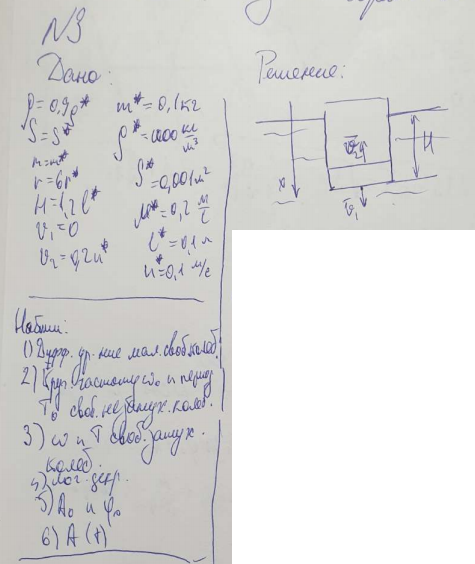 N3
Дано:
Решение:
ρ = 0,9ρ*
S = S*
m = m*
r = 6r*
H = 1,2l*
v₁ = 0
v₂ = 0,2u*
m* = 0,1 кг
ρ* = 1000 кг/м³
S* = 0,001 м²
= 0,2
l* = 0,1 м
u* = 0,1 м/с
x
H
v̄₁
Найти:
1) Дифф. ур-ние мал. своб. колеб.
2) Круг. частоту ω₀ и период
T₀ своб. незатух. колеб.
3) ω и T своб. затух.
колеб.
4) лог. декр.
5) A₀ и φ₀
6) A(t)